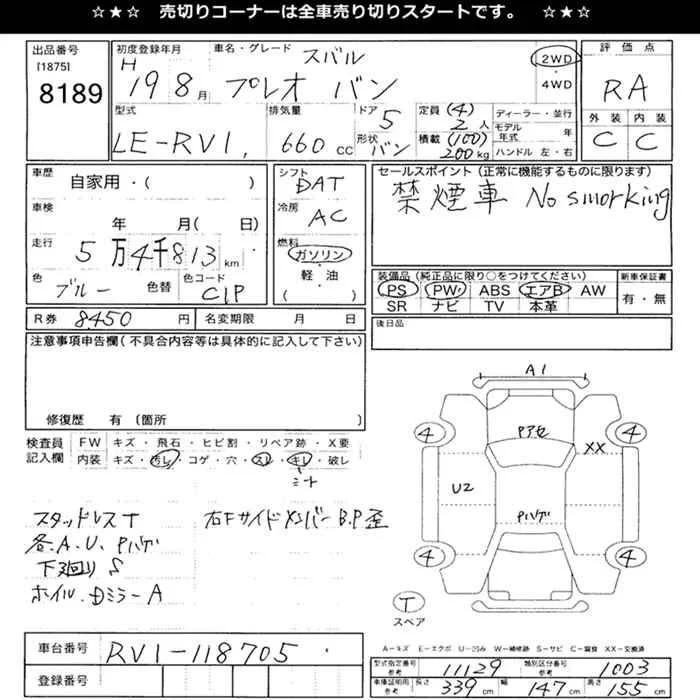 ☆★☆ 売切りコーナーは全車売り切りスタートです。 ☆★☆
出品番号
[1875]
8189
初度登録年月
H 19 8月
車名・グレード スバル
プレオ バン
2WD
・
4WD
評価点
RA
外装 内装
C C
型式
LE-RV1,
排気量
660 CC
ドア 5
形状 バン
定員 (4) 2 人
積載 (100) 200 kg
ディーラー・並行
モデル年式 年
ハンドル 左・右
車歴
自家用・( )
車検
年 月( 日)
走行 5万4千813km
色 ブルー 色替 色コード C1P
シフト DAT
冷房 AC
燃料
ガソリン
・
軽・油
( )
セールスポイント(正常に機能するものに限ります)
禁煙車 No smorking
装備品(純正品に限り○をつけてください)
PS PW ABS エアB AW
SR ナビ TV 本革
新車保証書
有・無
R券 8450 円 名変期限 月 日
後日品
注意事項申告欄(不具合内容等は具体的に記入して下さい)
修復歴 有〔箇所 〕
検査員記入欄
FW キズ・飛石・ヒビ割・リペア跡・X要
内装 キズ・汚レ・コゲ・穴・スレ・キレ・破レ
シート
スタッドレスT
各.A.U、Pハゲ
下廻りS
ホイル.DミラーA
右FサイドメンバーB.P歪
A1
Pアセ
4 4
XX
U2
Pハゲ
4 4
T
スペア
A-キズ E-エクボ U-凹み W-補修跡 S-サビ C-腐食 XX-交換済
車台番号 RV1-118705
登録番号
型式指定番号 参考 11129 類別区分番号 参考 1003
車庫証明用 参考 長さ 339 cm 幅 147 cm 高さ 155 cm